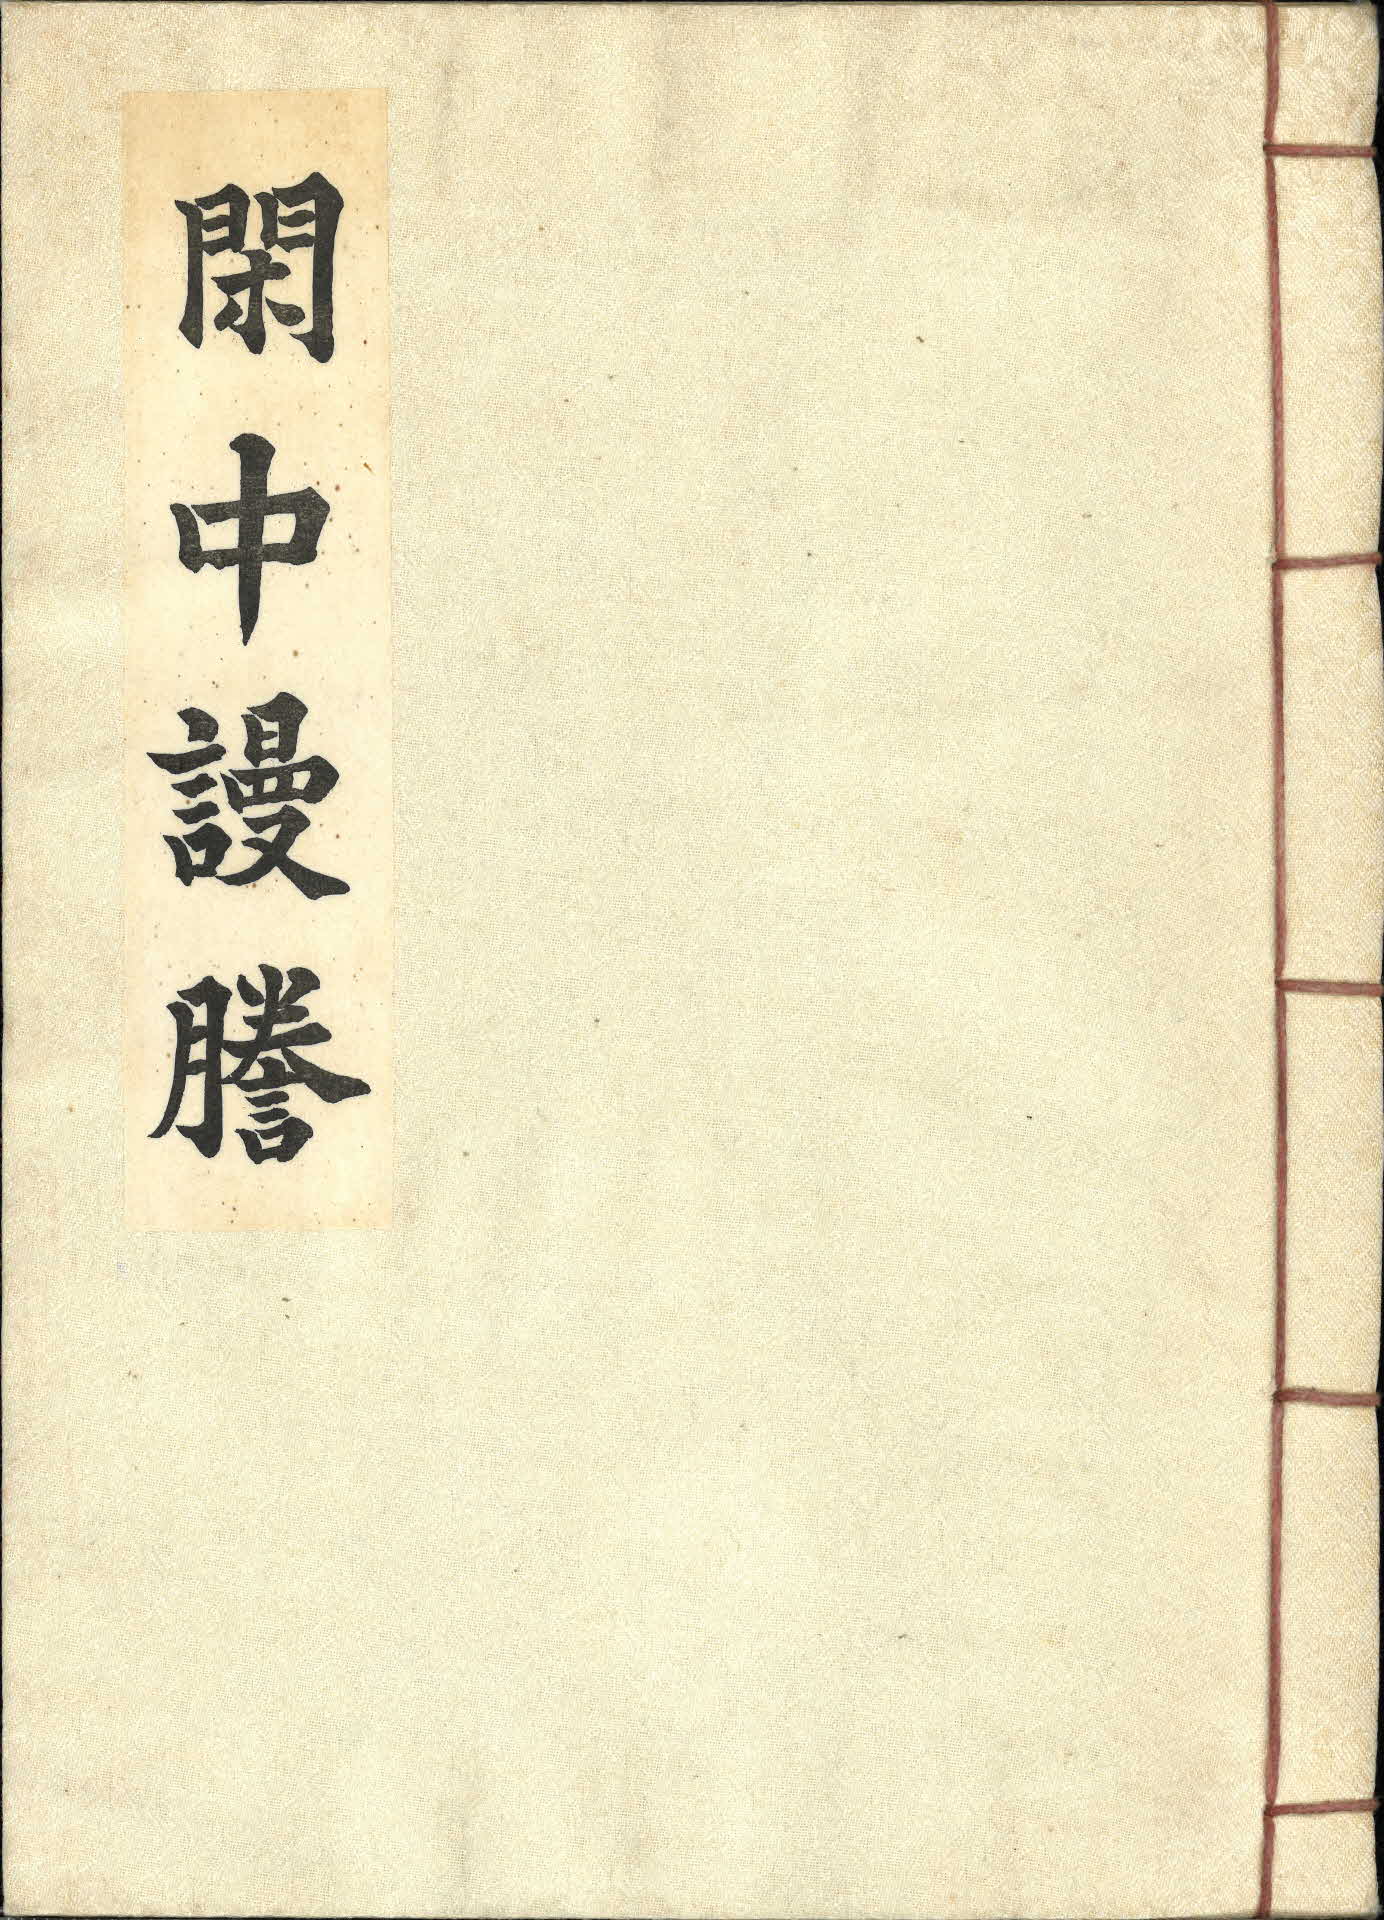 閑中謾謄